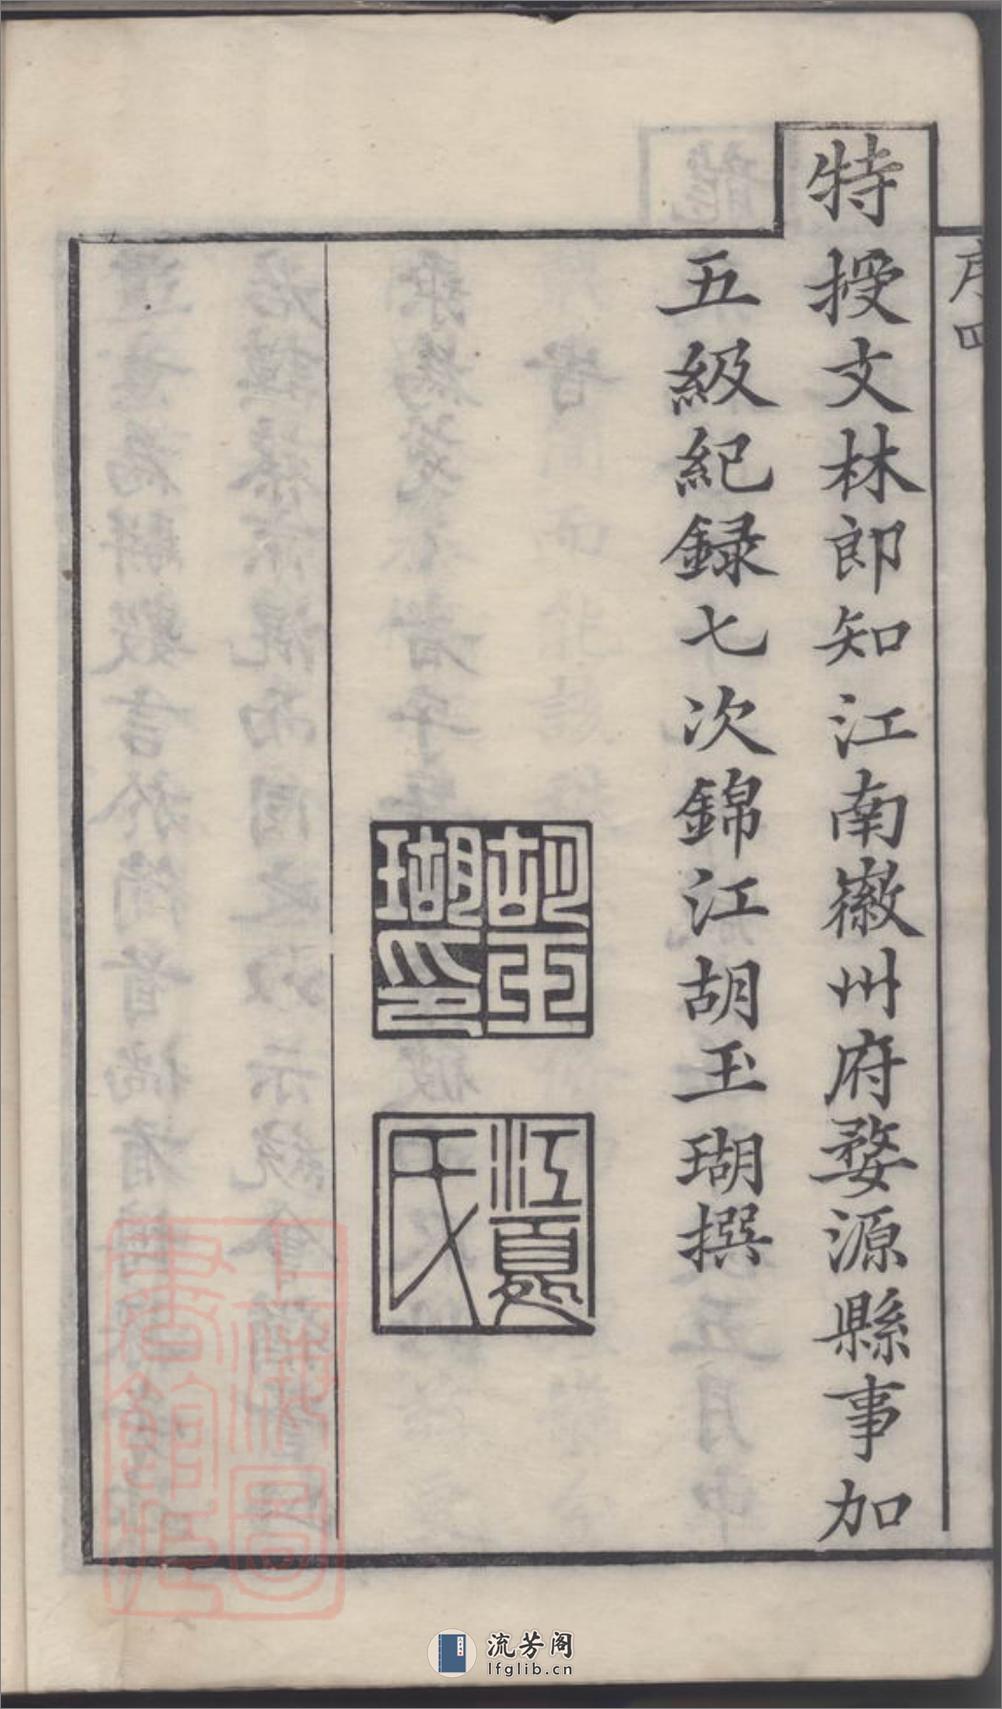 序四
特授文林郎知江南徽州府婺源縣事加
五級紀録七次錦江胡玉瑚撰
胡玉瑚印
江夏氏
上海圖書館藏
流芳阁
lfglib.cn